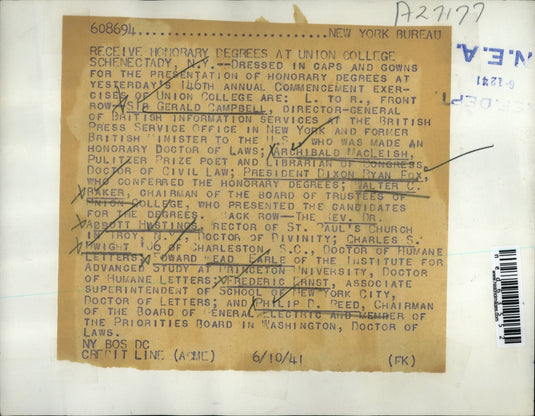 A27177
608694........................NEW YORK BUREAU
RECEIVE HONORARY DEGREES AT UNION COLLEGE
SCHENECTADY, N.Y.--DRESSED IN CAPS AND GOWNS
FOR THE PRESENTATION OF HONORARY DEGREES AT
YESTERDAY'S 146TH ANNUAL COMMENCEMENT EXER-
CISES OF UNION COLLEGE ARE: L. TO R., FRONT
ROW, SIR GERALD CAMPBELL, DIRECTOR-GENERAL
OF BRITISH INFORMATION SERVICES AT THE BRITISH
PRESS SERVICE OFFICE IN NEW YORK AND FORMER
BRITISH MINISTER TO THE U.S., WHO WAS MADE AN
HONORARY DOCTOR OF LAWS; ARCHIBALD MACLEISH,
PULITZER PRIZE POET AND LIBRARIAN OF CONGRESS,
DOCTOR OF CIVIL LAW; PRESIDENT DIXON RYAN FOX,
WHO CONFERRED THE HONORARY DEGREES; WALTER C.
BAKER, CHAIRMAN OF THE BOARD OF TRUSTEES OF
UNION COLLEGE, WHO PRESENTED THE CANDIDATES
FOR THE DEGREES. BACK ROW--THE REV. DR.
ABBOTT HASTINGS, RECTOR OF ST. PAUL'S CHURCH
IN TROY, N.Y., DOCTOR OF DIVINITY; CHARLES S.
DWIGHT, OF CHARLESTON, S.C., DOCTOR OF HUMANE
LETTERS; EDWARD MEAD EARLE OF THE INSTITUTE FOR
ADVANCED STUDY AT PRINCETON UNIVERSITY, DOCTOR
OF HUMANE LETTERS; FREDERIC ERNST, ASSOCIATE
SUPERINTENDENT OF SCHOOL OF NEW YORK CITY,
DOCTOR OF LETTERS; AND PHILIP D. REED, CHAIRMAN
OF THE BOARD OF GENERAL ELECTRIC AND MEMBER OF
THE PRIORITIES BOARD IN WASHINGTON, DOCTOR OF
LAWS.
NY BOS DC
CREDIT LINE (ACME) 6/10/41 (FK)
N.E.A.
6-1241
DEPT